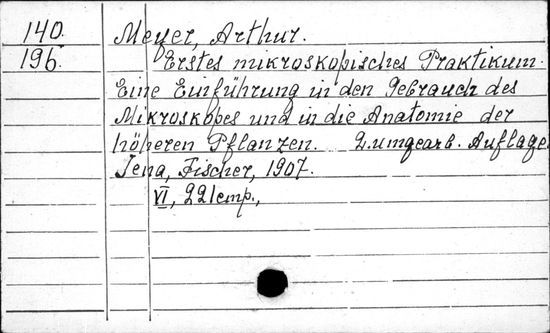 140. Meyer, Arthur.
196. Erstes mikroskopisches Praktikum.
Eine Einführung in den Gebrauch des
Mikroskopes und in die Anatomie der
höheren Pflanzen. 2. umgearb. Auflage.
Jena, Fischer, 1907.
VI, 221 cmp.,